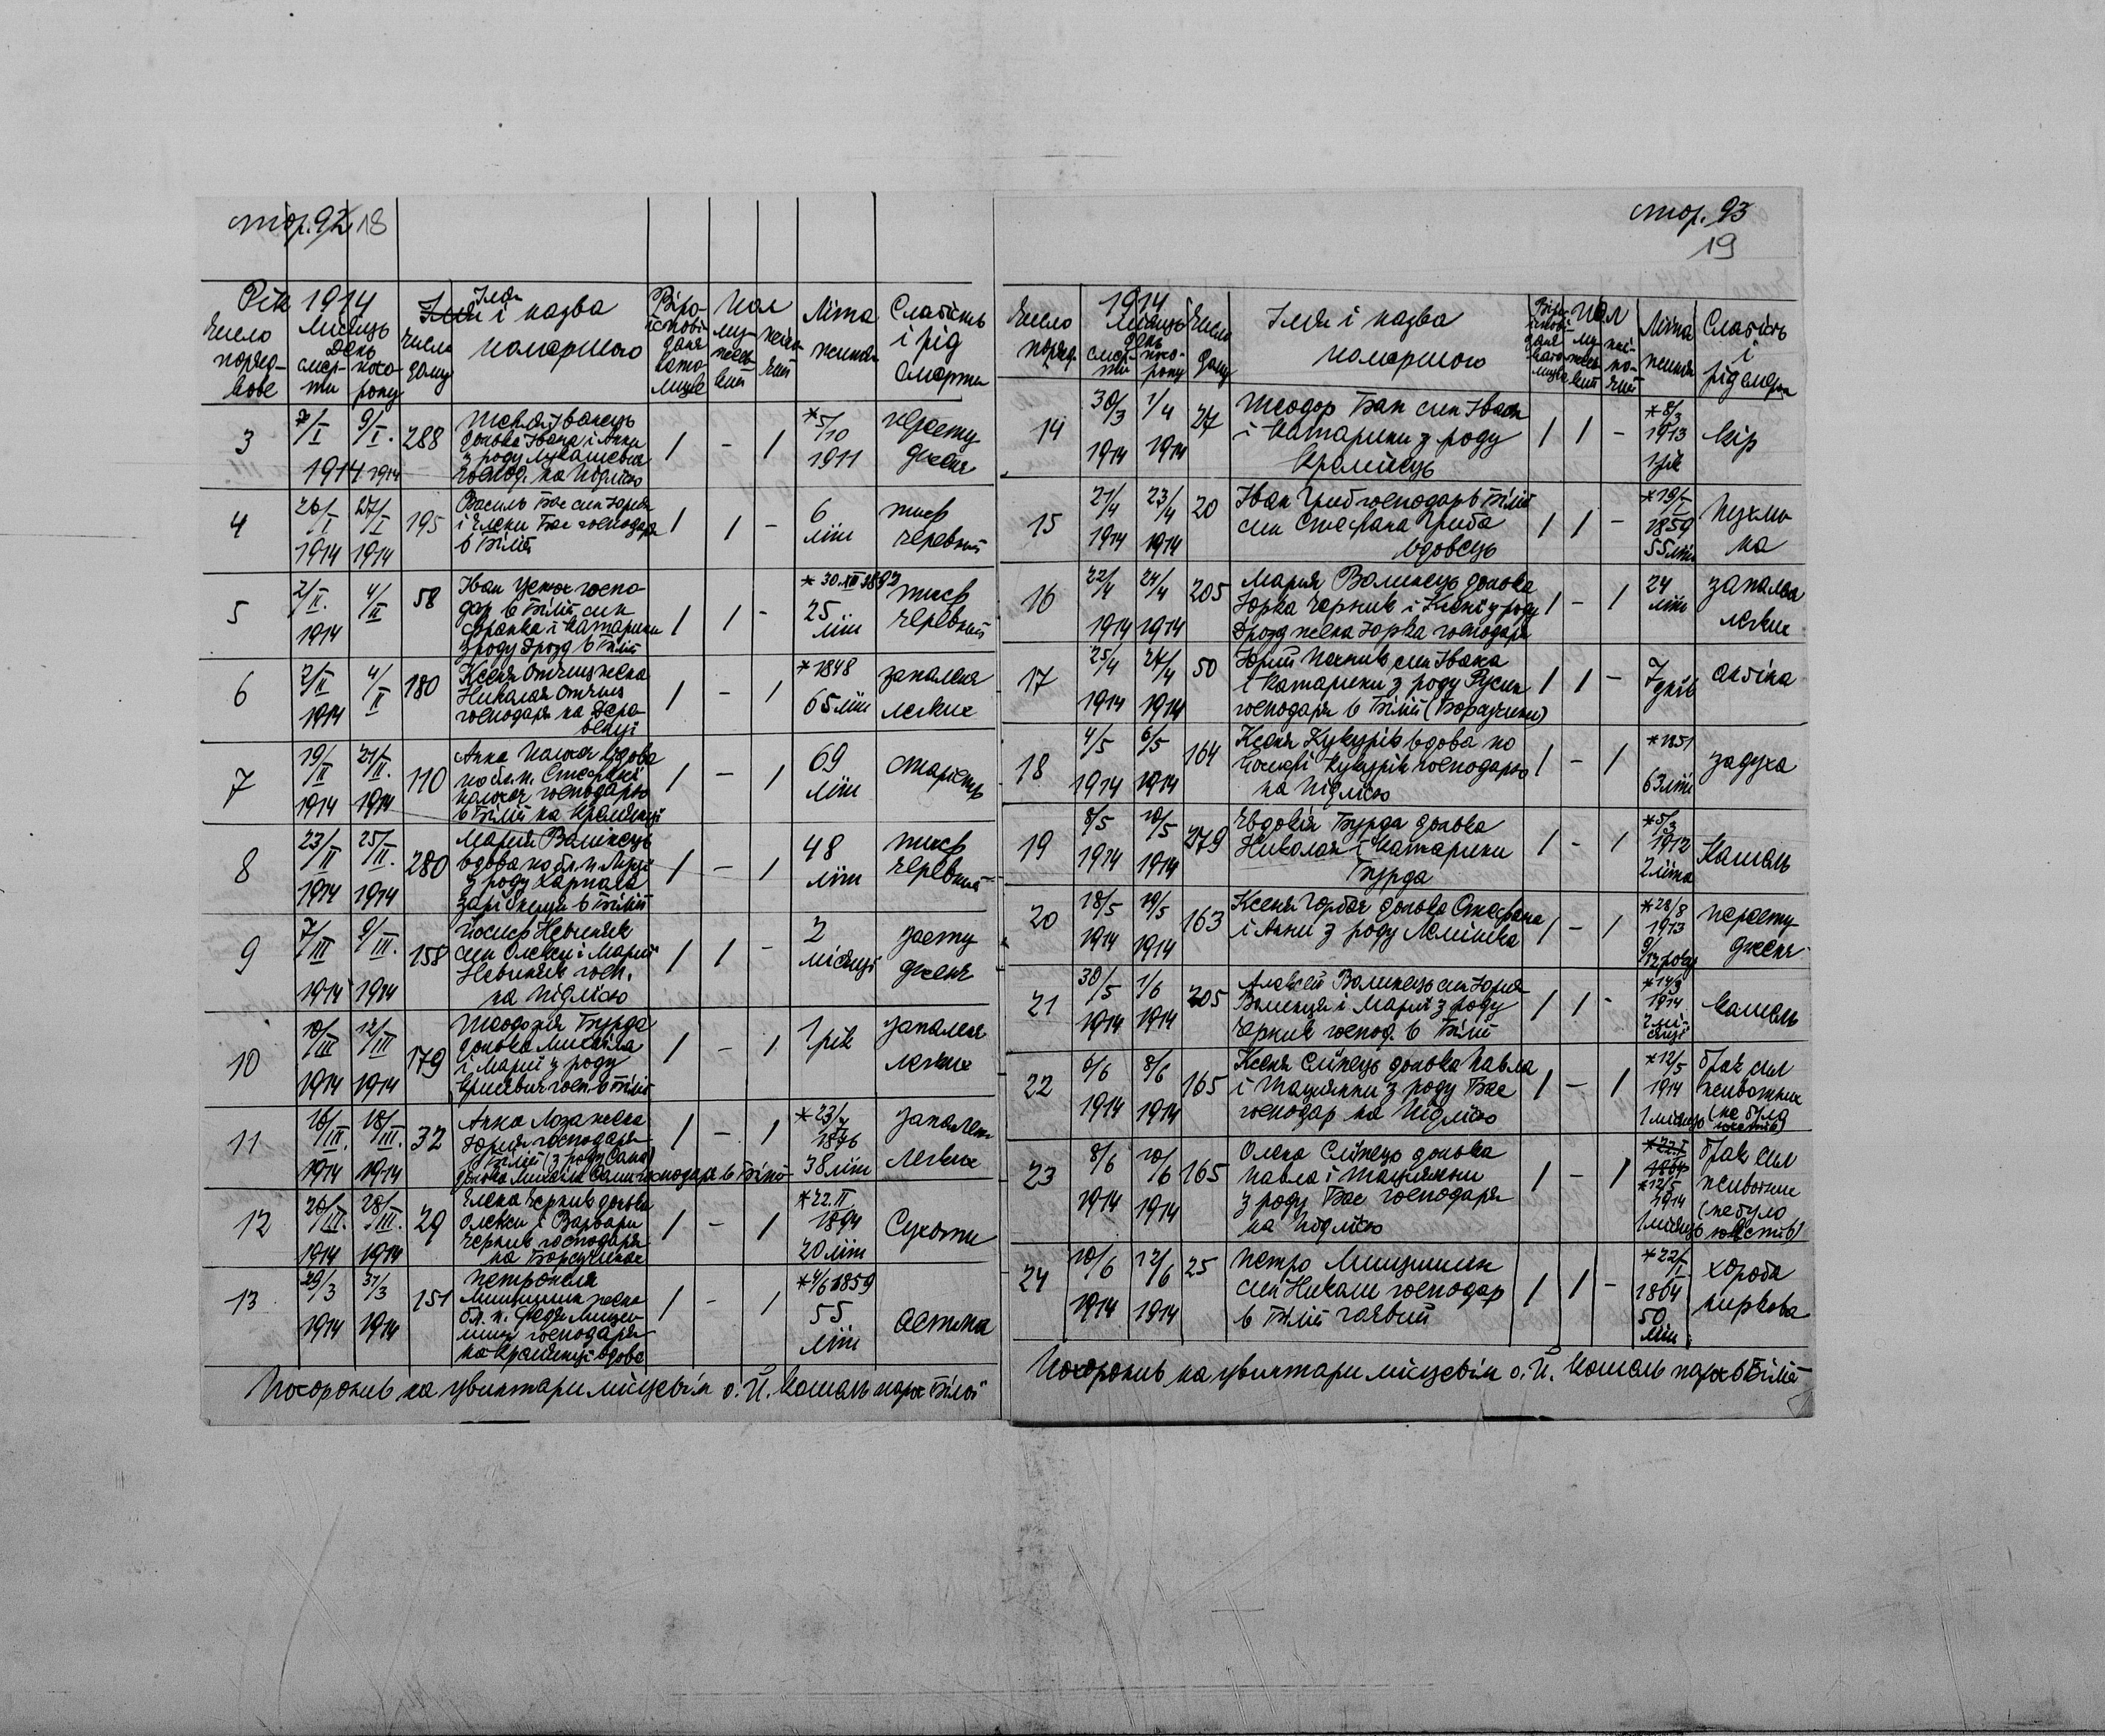 стор. 92 18
Рік 1914
Число порядкове
Місяць День
смерти
похорону
Число дому
Імя і назва помершого
Віроісповіданя католицке
Пол
мужеський
жіночий
Літа життя
Слабість і рід смерти
3 7/I 1914 9/I. 1914 288
Текля Іванець
донька Івана і Анни
з роду Лукашевич
господ. на Підлісю
1 - 1
*5/10
1911
перестуджене
4 26/I 1914 27/I 1914 195
Василь Бас син Юрія
і Елени Бас господаря
в Білій
1 1 -
6
літ
тиф
черевний
5 2/II. 1914 4/II 58
Іван госпо-
дар в Білій син
Франка і Катарини
з роду Дрозд в Білій
1 1 -
* 30.XII 1892
25
літ
тиф
черевний
6 2/II 1914 4/II 180
Ксеня жена
Николая
господаря на
1 - 1
*1848
65 літ
запаленя
легких
7 19/II 1914 21/II. 1914 110
Анна вдова
по бл. п. Стефані
господарю
в Білій на Кремінци
1 - 1
69
літ
старість
8 23/II 1914 25/II. 1914 280
Мария Волинець
вдова по бл. п.
з роду Харпала
зарібници в Білій
1 - 1
48
літ
тиф
черевний
9 7/III 1914 9/III. 1914 158
Йосиф Невиняк
син Олекси і Марії
Невиняк госп.
на Підлісю
1 1 -
2
місяці
застуджене
10 10/III 1914 12/III 1914 179
Теодозия Бурда
донька Михайла
і Марії з роду
госп. в Білій
1 - 1
1 рік
запаленя
легких
11 16/III. 1914 18/III. 1914 32
Анна Лоза жена
Юрия господаря
в Білій (з роду Сами)
донька Михайла Сами господаря в Білій
1 - 1
*23/
1876
38 літ
запалень
легких
12 26/III. 1914 28/III. 1914 29
Елена Черник донька
Олекси і Варвари
Черник господаря
на Борсучинах
1 - 1
*22.II
1894
20 літ
Сухоти
13 29/3 1914 31/3 1914 151
Петронеля
Мищишин жена
бл. п. Федя Мищи-
шин господаря
на Кремінци вдова
1 - 1
*4/6 1859
55
літ
астма
Похоронив на цвинтари місцевім о. Й. Кошаль парх Білої
стор. 93
19
Число поряд.
1914
Місяць День
смерти
похорону
Число дому
Імя і назва
помершого
Віроісповіданя католицке
Пол
мужеский
жіночий
Літа життя
Слабість і рід смерти
14 30/3 1914 1/4 1914 27
Теодор Бан син Івана
і Катарини з роду
Кремінець
1 1 -
*8/3
1913
1 рік
кір
15 21/4 1914 23/4 1914 20
Іван Гриб господар в Білій
син Стефана Гриба
вдовець
1 1 -
*19/I
1859
55 літ
пухлина
16 22/4 1914 24/4 1914 205
Мария Волинець донька
Юрка Черник і Ксенї з роду
Дрозд жена Юрка господаря
1 - 1
24
літ
запаленя
легких
17 25/4 1914 27/4 1914 50
Юрий син Івана
і Катарини з роду Русин
господаря в Білій (Борсучини)
1 1 -
7 днів
слабіна
18 4/5 1914 6/5 1914 164
Ксеня Кукурік вдова по
Кукурік господарю
на Підлісю
1 - 1
*1851
63 літ
задуха
19 8/5 1914 10/5 1914 279
Евдокія Бурда донька
Николая і Катарини
Бурда
1 - 1
*5/3
1912
2 літа
Кашель
20 18/5 1914 19/5 1914 163
Ксеня Горбач донька Стефана
і Анни з роду Лемішка
1 - 1
*28/8
1913
9/12 року
перестуджене
21 30/5 1914 1/6 1914 205
Алексій Волинець син Юрія
Волинця і Марії з роду
Черник господ. в Білій
1 1 -
1914
2 мі-
сяці
кашель
22 6/6 1914 8/6 1914 165
Ксеня Сліпець донька Павла
і Тациянни з роду Бас
господар на Підлісю
1 - 1
*12/5
1914
1 місяць
брак сил
животних
(не було
23 8/6 1914 10/6 1914 165
Олена Сліпець донька
Павла і Тациянни
з роду Бас господаря
на Підлісю
1 - 1
*22.I
1864
*12/5
1914
1 місяць
брак сил
животних
(не було
24 10/6 1914 12/6 1914 25
Петро Мищишин
син Николи господар
в Білій
1 1 -
*22/I
1864
50
літ
хороба
ниркова
Похоронив на цвинтари місцевім о. Й. Кошаль парх в Білій